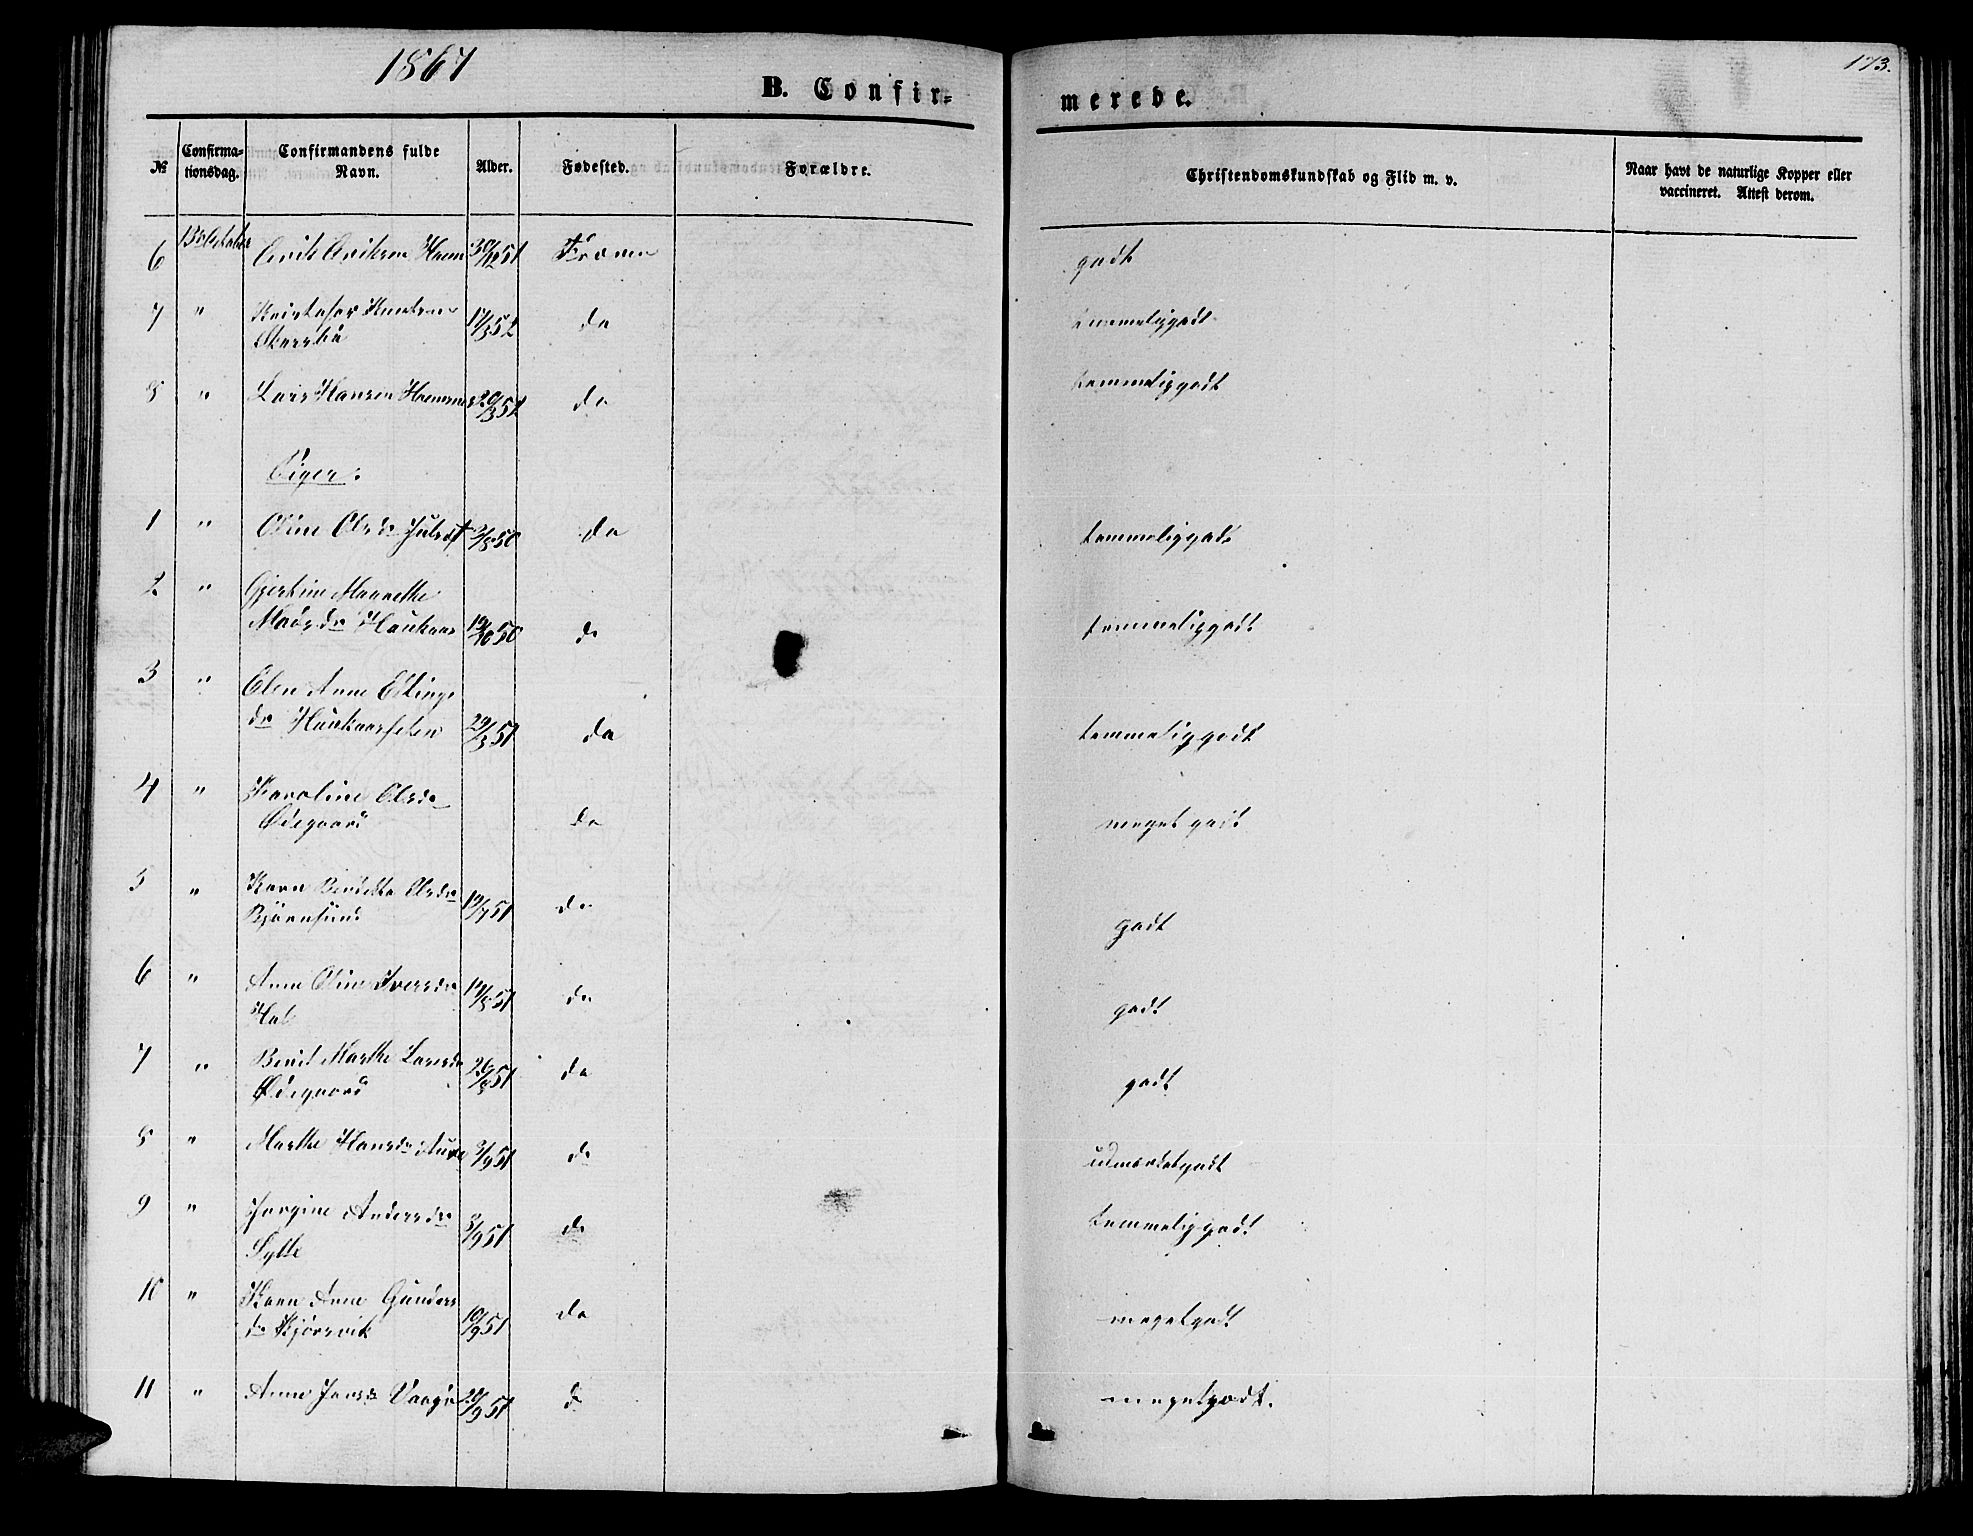 1867
173.
B. Confir-
merede.
No
Confirma-
tionsdag.
Confirmandens fulde
Navn.
Alder.
Fødested.
Forældre.
Christendomskundskab og Flid m. v.
Naar havt de naturlige Kopper eller
vaccineret. Attest derom.
6 13 October Erik Eriksen 30/12 51 Fræna godt
7 " Kristofer Knudsen
Skarsbø 17/3 52 do temmeliggodt
8 " Lars Hansen 29/3 51 do temmeliggodt
Piger:
1 " Oline Olsdr Julset 3/8 50 do temmeliggodt
2 " Gjertine Marrethe
Madsdr Haukaas 19/10 50 do temmeliggodt
3 " Elen Anne Ellings
dr 29/3 51 do temmeliggodt
4 " Karoline Olsdr
Ødegaard do meget godt
5 " Karn Olsdr
Bjørnsund 19/7 51 do godt
6 " Anne Oline Iversdr
Hol 14/8 51 do godt
7 " Berit Marthe Larsdr
Ødegaard 26/8 51 do godt
8 " Marthe Hansdr Aure 3/9 51 do udmærketgodt
9 " Jorgine Andersdr
Sylte 8/9 51 do temmeliggodt
10 " Karn Anne Gunders
dr Kjørsvik 10/9 51 do megetgodt
11 " Anne Jansdr Vaagø 28/9 51 d megetgodt.